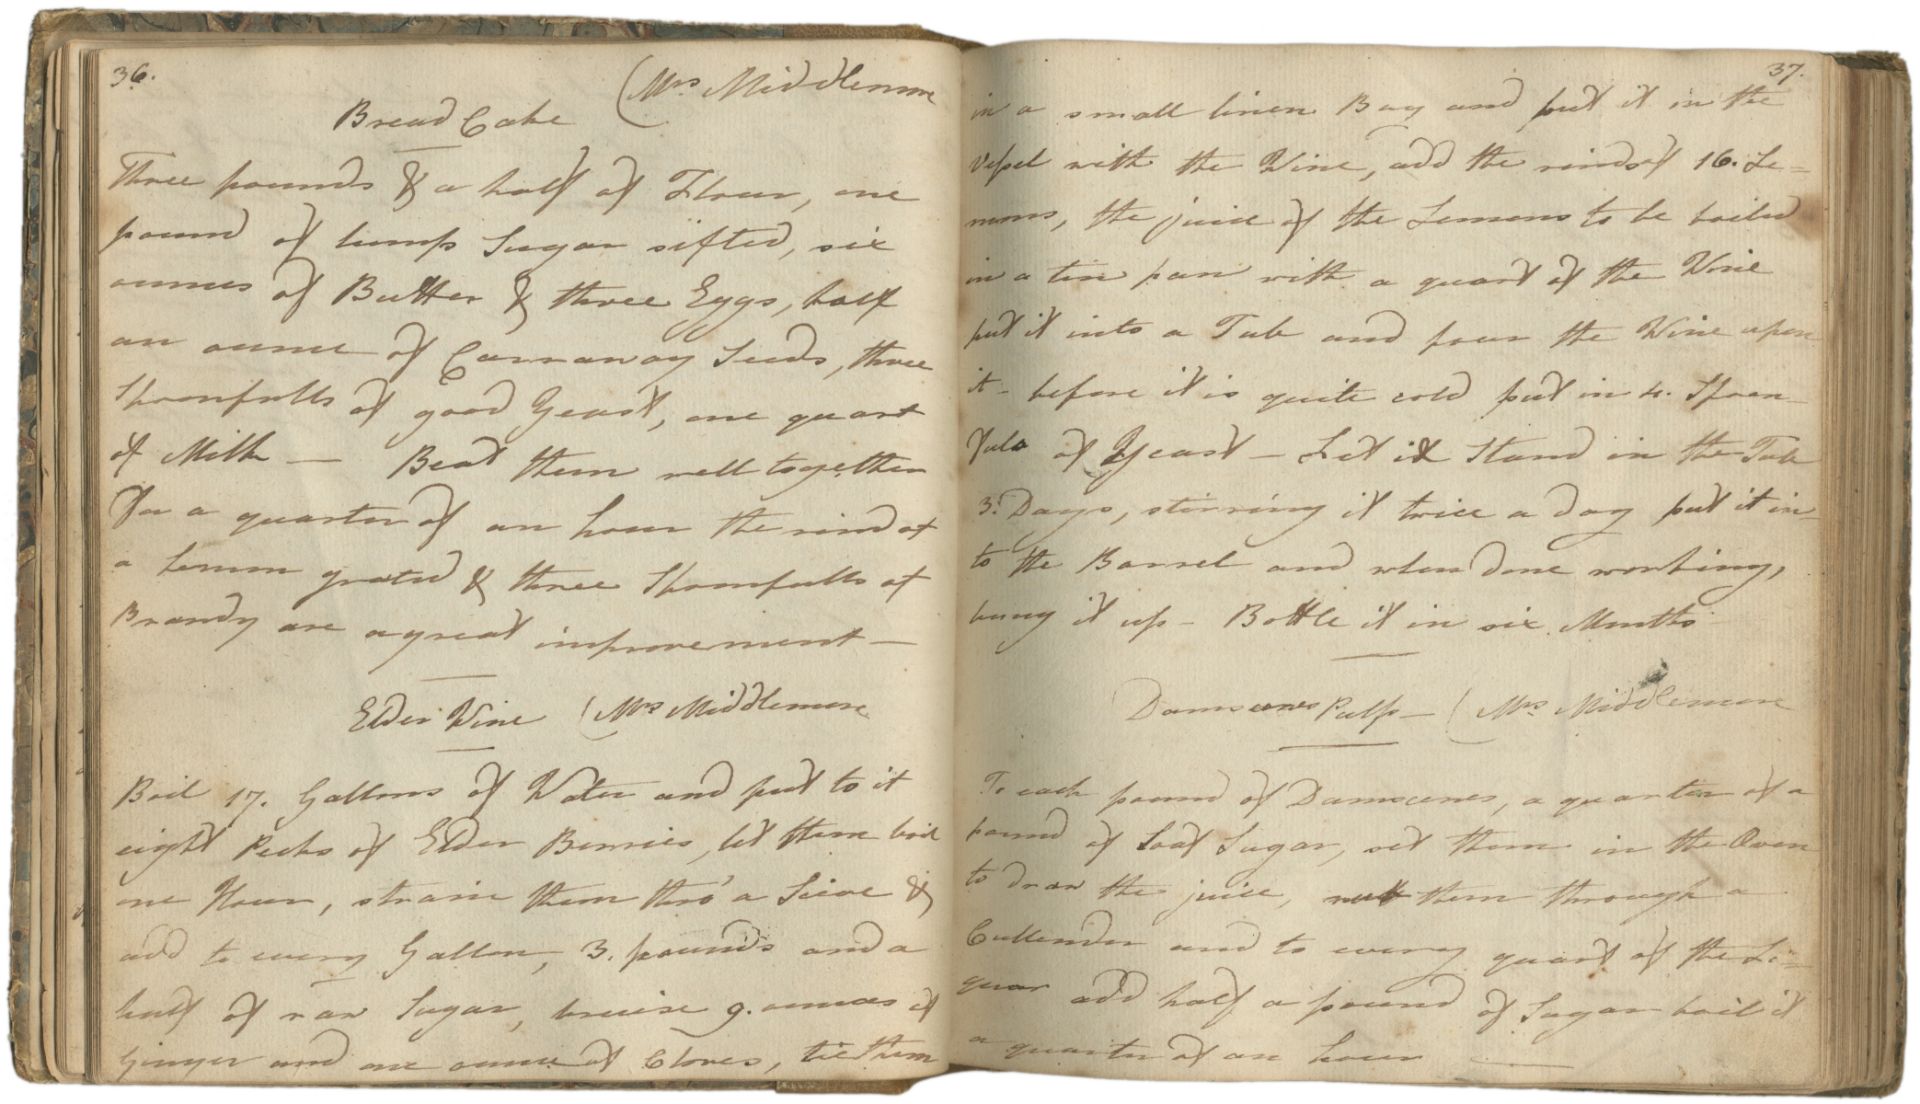 36.
Bread Cake (Mrs Middlemore
Three pounds & a half of Flour, one
pound of lump Sugar sifted, six
ounces of Butter & three Eggs, half
an ounce of Carraway Seeds, three
Spoonfulls of good Yeast, one quart
of Milk — Beat them well together
for a quarter of an hour the rind of
a Lemon grated & three Spoonfulls of
Brandy are a great improvement —
Elder Wine (Mrs Middlemore
Boil 17. Gallons of Water and put to it
eight Pecks of Elder Berries, let them boil
one Hour, strain them thro' a Sieve &
add to every Gallon, 3. pounds and a
half of raw Sugar, bruise 9. ounces of
Ginger and one ounce of Cloves, tie them
37.
in a small linen Bag and put it in the
Vessel with the Wine, add the rinds of 16. Le=
mons, the juice of the Lemons to be boiled
in a tin pan with a quart of the Wine
put it into a Tub and pour the Wine upon
it - before it is quite cold put in 4. Spoon-
fuls of Yeast — Let it Stand in the Tub
3. Days, stirring it twice a day put it in-
to the Barrel and when done working,
bung it up - Bottle it in six Months
Damscenes Pulp — (Mrs Middlemore
To each pound of Damscenes, a quarter of a
pound of Loaf Sugar, set them in the Oven
to draw the juice, rub them through a
Cullender and to every quart of the Li=
quor add half a pound of Sugar boil it
a quarter of an hour —